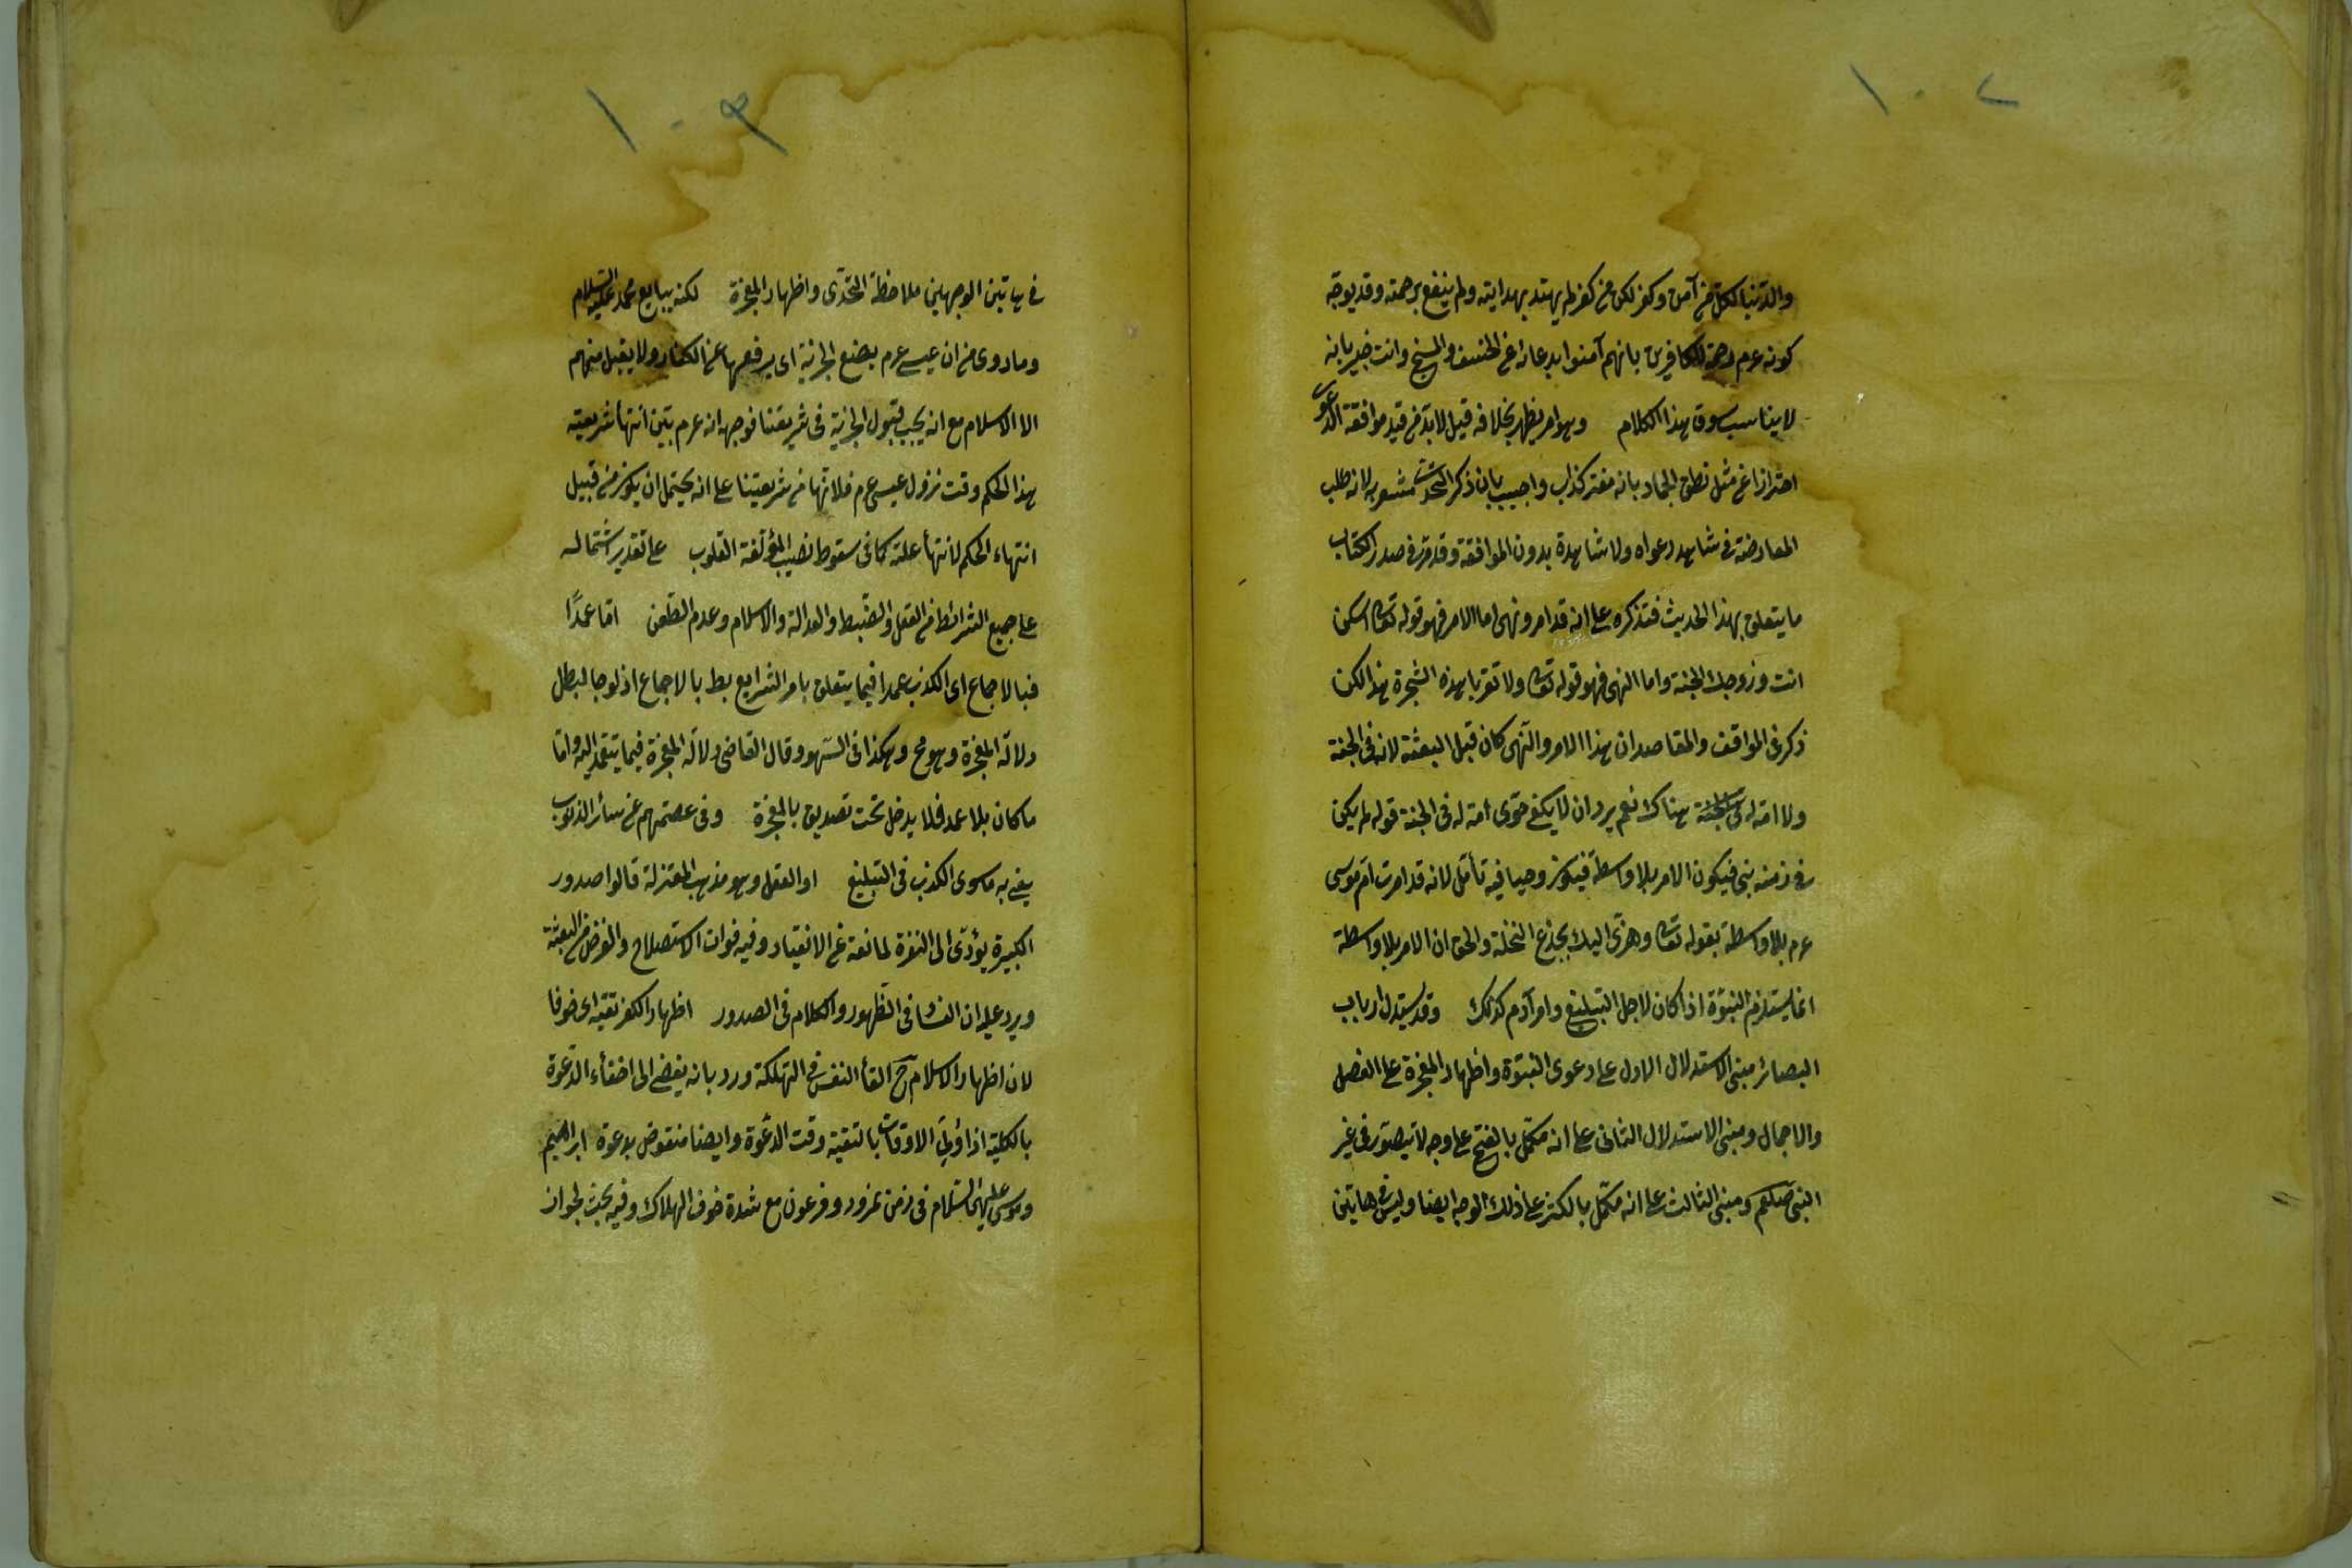 ١٠٢
والدنيا لكل من آمن وكفر لكن من كفر لم يهتد بهدايته ولم ينتفع برحمته وقد يوجه
كونه عم رحمة للكافرين بانهم آمنوا بدعائه عن الخسف والمسخ وانت خبير بانه
لا يناسب سوق هذا الكلام وهو امر يظهر بخلافه قيل لابد من قيد موافقة الدعوى
احترازا عن مثل نطق الجماد بانه مفتر كذاب واجيب بان ذكر التحدى مشعر به لانه طلب
المعارضة فى شاهد دعواه ولا شاهدة بدون الموافقة وقد مر فى صدر الكتاب
ما يتعلق بهذا الحديث فتذكره على انه قد امر ونهى اما الامر فهو قوله تعالى اسكن
انت وزوجك الجنة واما النهى فهو قوله تعالى ولا تقربا هذه الشجرة هذا لكن
ذكر فى المواقف والمقاصد ان هذا الامر والنهى كان قبل البعثة لانه فى الجنة
ولا امة له فى الجنة هناك نعم يرد ان لا يكفى حوى امة له فى الجنة قوله لم يكن
فى زمنه نبى فيكون الامر بلا واسطة فيكون وحيا فيه تأمل لانه قد امرت ام موسى
عم بلا واسطة بقوله تعالى وهزى اليك بجذع النخلة والحق ان الامر بلا واسطة
انما يستلزم النبوة اذا كان لاجل التبليغ وامر آدم كذلك وقد يستدل ارباب
البصائر مبنى الاستدلال الاول على دعوى النبوة واظهار المعجزة على الفصل
والاجمال ومبنى الاستدلال الثانى على انه مكمل بالفتح على وجه لا يتصور فى غير
النبى صلعم ومبنى الثالث على انه مكمل بالكسر على ذلك الوجه ايضا وليس فى هاتين
١٠٣
فى هاتين الوجهين ملاحظة التحدى واظهار المعجزة لكنه يتابع محمد عليه السلام
وما روى من ان عيسى عم يضع الجزية اى يرفعها عن الكفار ولا يقبل منهم
الا الاسلام مع انه يجب قبول الجزية فى شريعتنا فوجهه انه عم بين انتهأ شريعته
هذا الحكم وقت نزول عيسى عم فلانتها من شريعتنا على انه يحتمل ان يكون من قبيل
انتهاء الحكم لانتهأ علته كما فى سقوط نصيب المؤلفة القلوب على تقدير اشتماله
على جميع الشرائط من العقل والضبط والعدالة والاسلام وعدم الطعن اما عمدًا
فبالاجماع اى الكذب عمدا فيما يتعلق بامر الشرايع بط بالاجماع اذ لو جا لبطل
دلالة المعجزة وهو مح وهكذا فى السهو وقال القاضى دلالة المعجزة فيما يتعمد اليه واما
ما كان بلا عمد فلا يدخل تحت تصديق بالمعجزة وفى عصمتهم عن سائر الذنوب
يعنى به ما سوى الكذب فى التبليغ او العقل وهو مذهب المعتزلة قالوا صدور
الكبيرة يؤدى الى النفرة لمانعة عن الانقياد وفيه فوات الاستصلاح والغرض من البعثة
ويرد عليه ان الفسا فى الظهور والكلام فى الصدور اظهار الكفر تقية اى خوفا
لان اظهار الاسلام ح القأ النفس فى التهلكة ورد بانه يفضى الى اخفأء الدعوة
بالكلية اذ اولى الاوقات بالتقية وقت الدعوة وايضا منقوض بدعوة ابراهيم
وموسى عليهما السلام فى زمن نمرود وفرعون مع شدة خوف الهلاك وفيه بحث لجواز